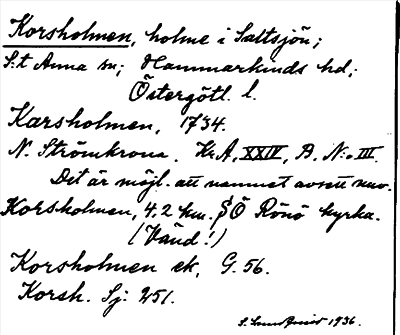 Korsholmen, holme i Saltsjön;
S:t Anna sn; Hammarkinds hd;
Östergötl. l.
Karsholmen, 1734.
N. Strömkrona. Kr.A, XXIV, B. N:o III.
Det är möjl. att namnet avsett nuv.
Korsholmen, 4.2 km. SÖ Rönö kyrka.
(Vänd!)
Korsholmen ek, G. 56.
Korsh. Sj. 251.
1936.